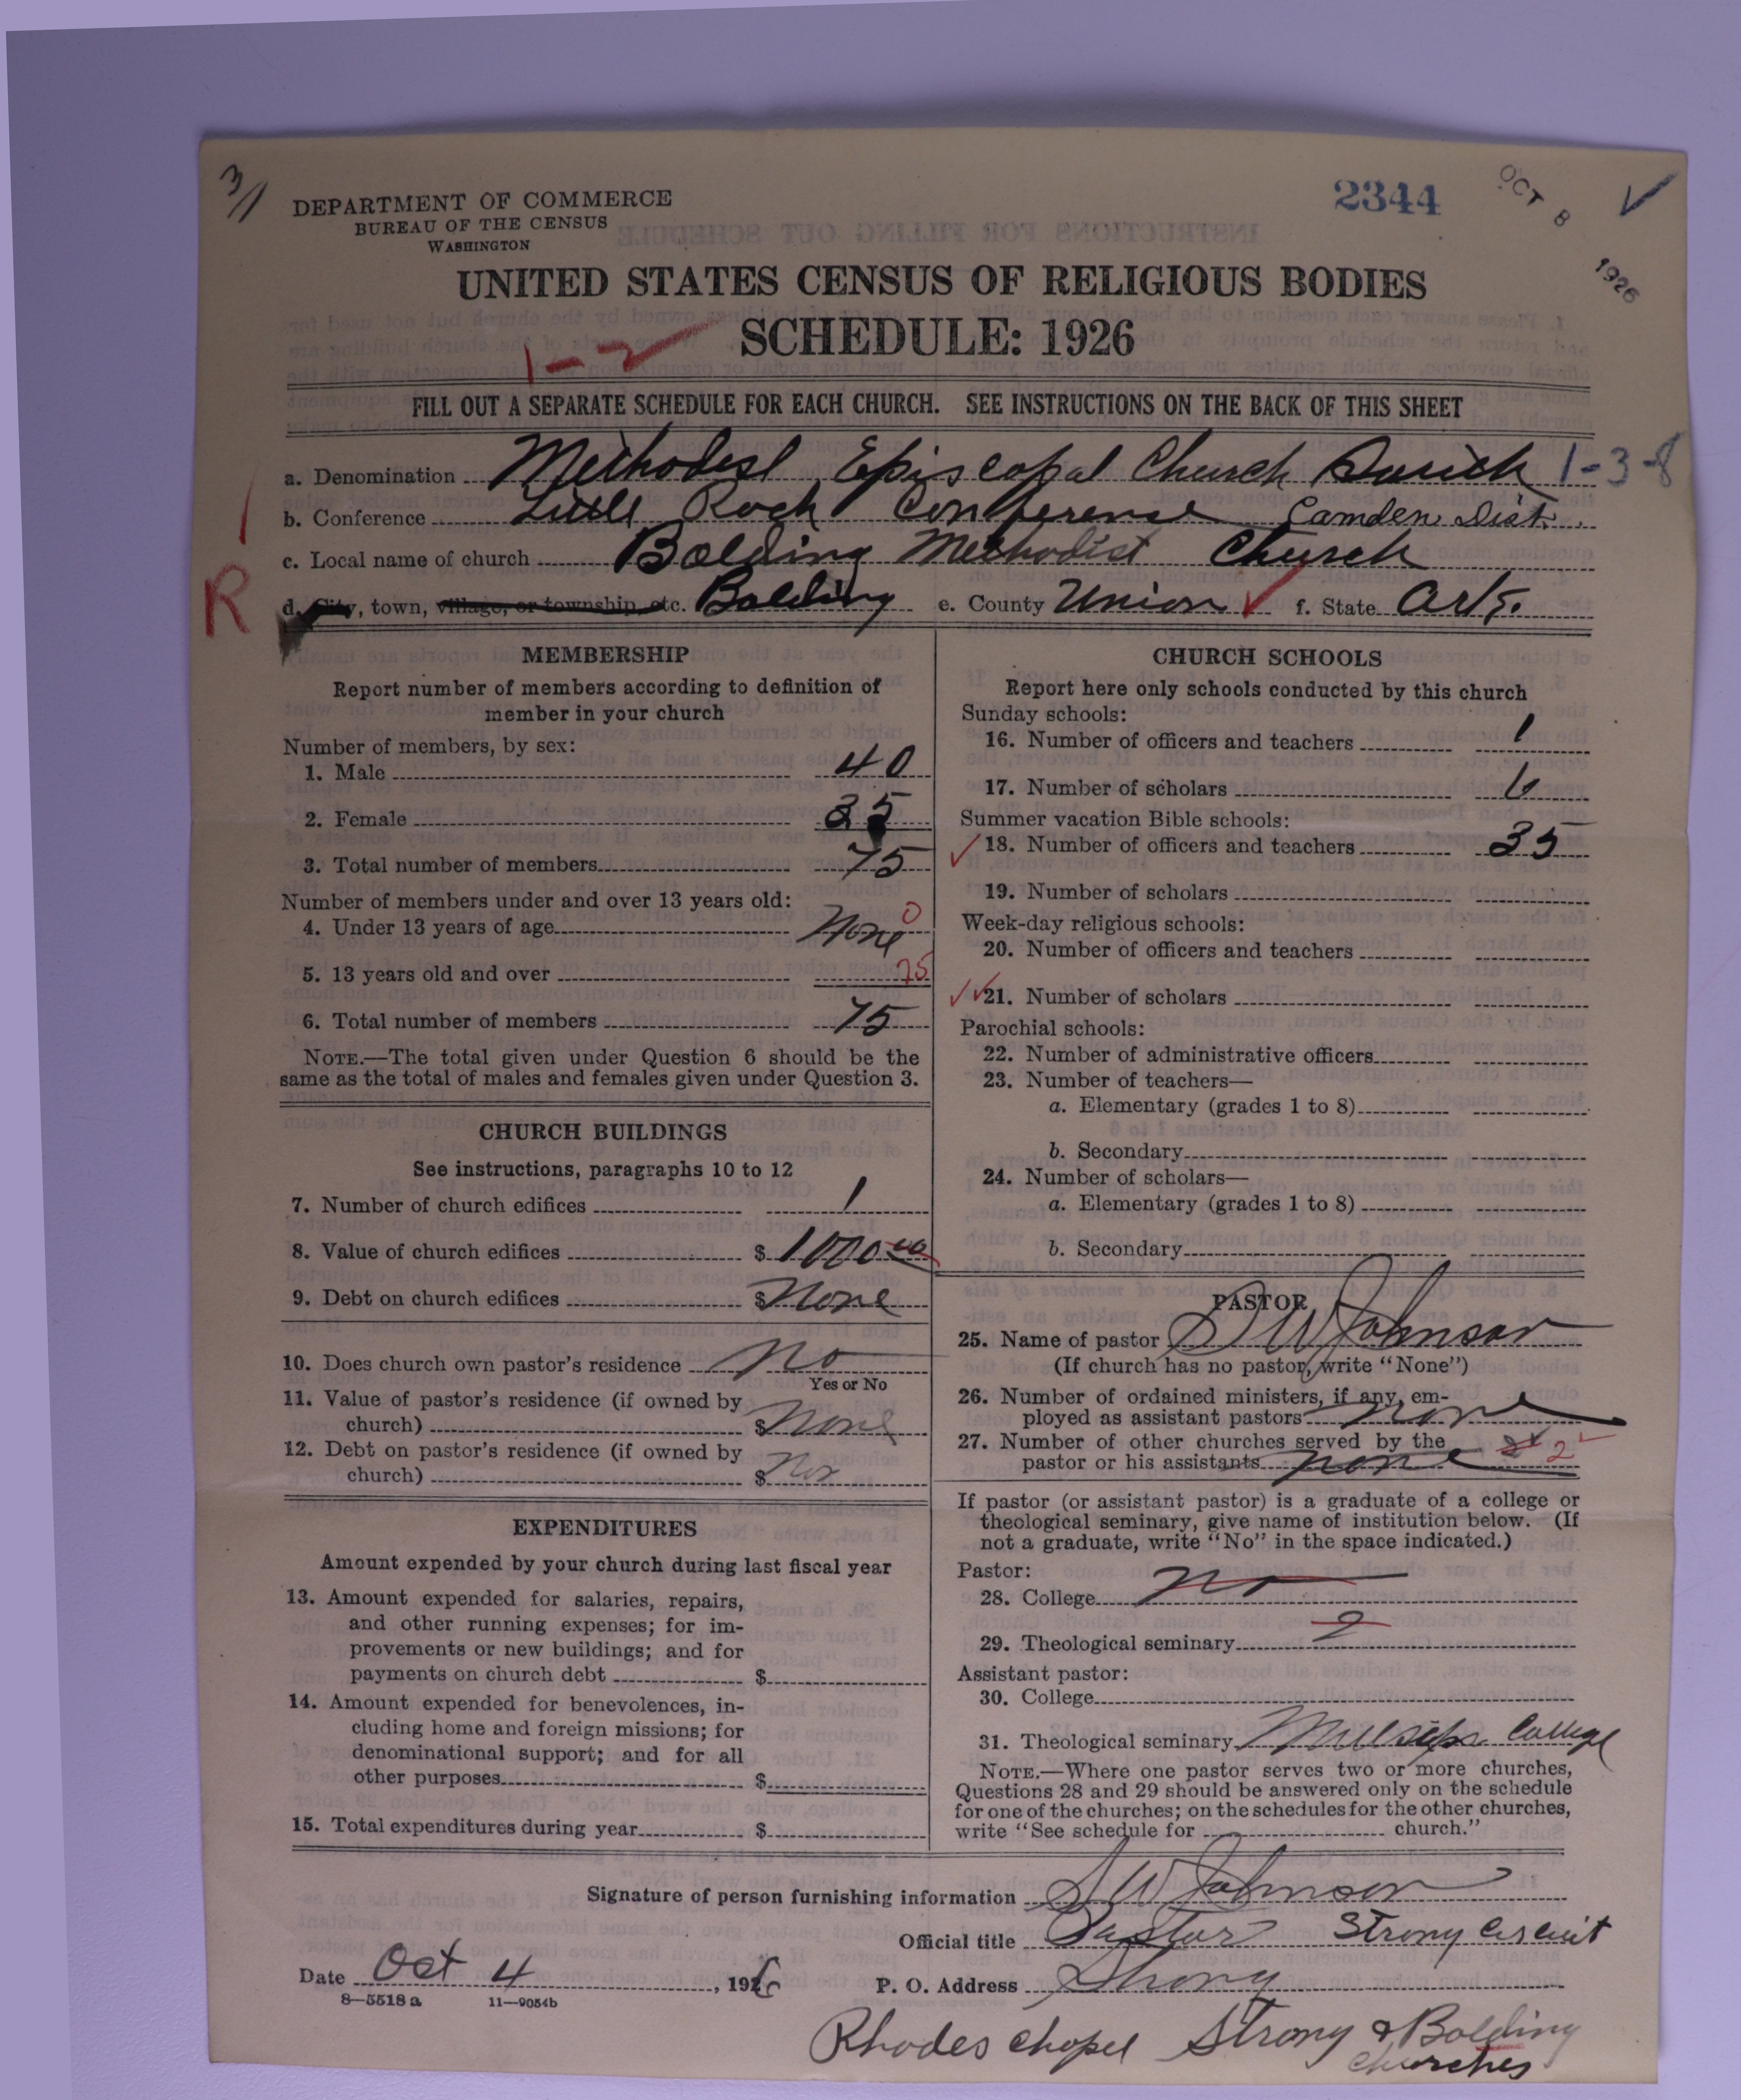 3/1
DEPARTMENT OF COMMERCE
BUREAU OF THE CENSUS
WASHINGTON
2344
OCT 8 1926
UNITED STATES CENSUS OF RELIGIOUS BODIES
SCHEDULE: 1926
1-2
FILL OUT A SEPARATE SCHEDULE FOR EACH CHURCH. SEE INSTRUCTIONS ON THE BACK OF THIS SHEET
a. Denomination Methodist Episcopal Church South 1-3-8
b. Conference Little Rock Conference Camden Dist.
c. Local name of church Bolding Methodist Church
R
d. City, town, village, or township, etc. Bolding e. County Union f. State Ark.
MEMBERSHIP
Report number of members according to definition of
member in your church
Number of members, by sex:
1. Male 40
2. Female 35
3. Total number of members 75
Number of members under and over 13 years old:
4. Under 13 years of age None 0
5. 13 years old and over 75
6. Total number of members 75
NOTE.—The total given under Question 6 should be the
same as the total of males and females given under Question 3.
CHURCH BUILDINGS
See instructions, paragraphs 10 to 12
7. Number of church edifices 1
8. Value of church edifices $ 1000 00
9. Debt on church edifices $ None
10. Does church own pastor's residence No
Yes or No
11. Value of pastor's residence (if owned by
church) $ None
12. Debt on pastor's residence (if owned by
church) $
EXPENDITURES
Amount expended by your church during last fiscal year
13. Amount expended for salaries, repairs,
and other running expenses; for im-
provements or new buildings; and for
payments on church debt $
14. Amount expended for benevolences, in-
cluding home and foreign missions; for
denominational support; and for all
other purposes $
15. Total expenditures during year $
CHURCH SCHOOLS
Report here only schools conducted by this church
Sunday schools:
16. Number of officers and teachers 1
17. Number of scholars 6
Summer vacation Bible schools:
18. Number of officers and teachers 35
19. Number of scholars
Week-day religious schools:
20. Number of officers and teachers
21. Number of scholars
Parochial schools:
22. Number of administrative officers
23. Number of teachers—
a. Elementary (grades 1 to 8)
b. Secondary
24. Number of scholars—
a. Elementary (grades 1 to 8)
b. Secondary
PASTOR
25. Name of pastor S W Johnson
(If church has no pastor, write "None")
26. Number of ordained ministers, if any, em-
ployed as assistant pastors none
27. Number of other churches served by the
pastor or his assistants none 2
If pastor (or assistant pastor) is a graduate of a college or
theological seminary, give name of institution below. (If
not a graduate, write "No" in the space indicated.)
Pastor:
28. College no
29. Theological seminary 2
Assistant pastor:
30. College
31. Theological seminary Millsaps College
NOTE.—Where one pastor serves two or more churches,
Questions 28 and 29 should be answered only on the schedule
for one of the churches; on the schedules for the other churches,
write "See schedule for church."
Signature of person furnishing information S W Johnson
Official title Pastor Strong Circuit
Date Oct 4, 1926 P. O. Address Strong
8—5518 a 11—9054b
Rhodes Chapel Strong & Bolding
churches